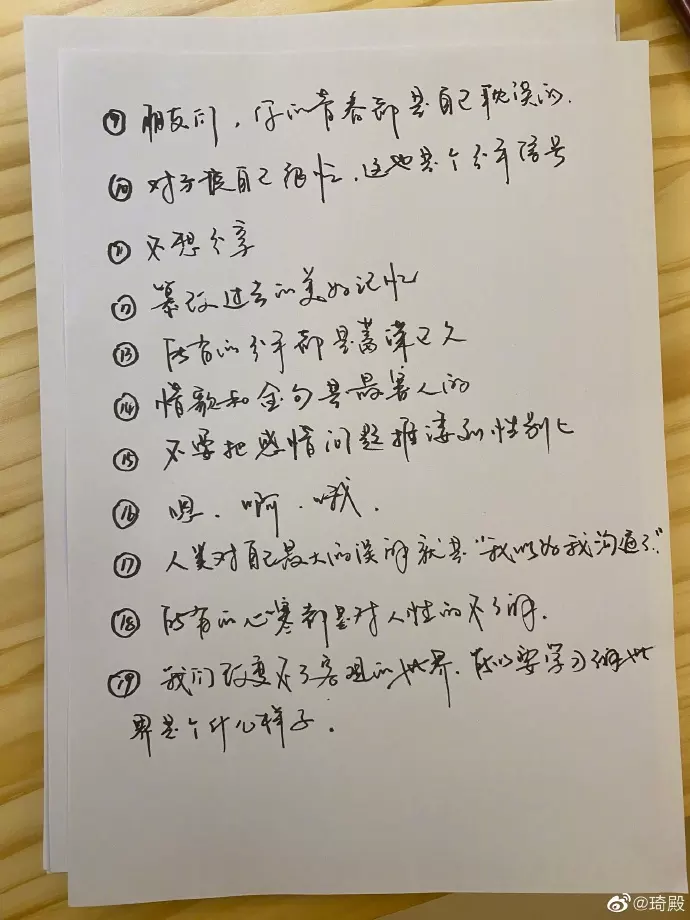 ⑨ 朋友们，你的青春都是自己耽误的.
⑩ 对方说自己很忙，这也是个分手信号
⑪ 不想分享
⑫ 篡改过去的美好记忆
⑬ 所有的分手都是蓄谋已久
⑭ 情歌和金句是最害人的
⑮ 不要把感情问题推诿到性别上
⑯ 嗯．啊．哦．
⑰ 人类对自己最大的误解就是“我以为我沟通了”
⑱ 所有的心寒都是对人性的不了解．
⑲ 我们改变不了客观的世界．所以要学习了解世
界是个什么样子．
@琦殿